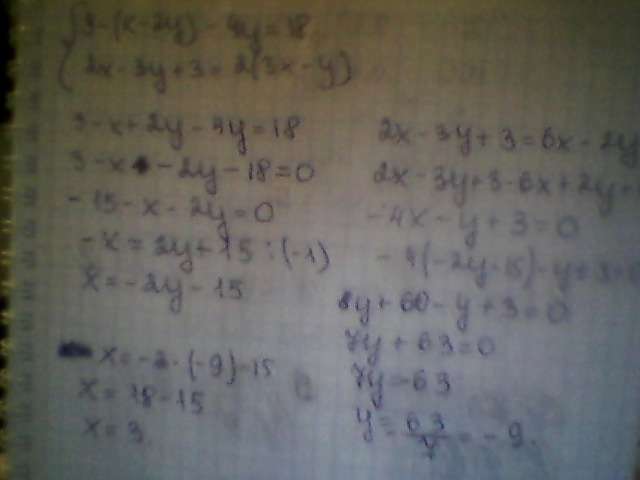 3-(x-2y)-4y=18
2x-3y+3=2(3x-y)
3-x+2y-4y=18
3-x-2y-18=0
-15-x-2y=0
-x=2y+15 :(-1)
x=-2y-15
2x-3y+3=6x-2y
2x-3y+3-6x+2y
-4x-y+3=0
-4(-2y-15)-y+3=0
8y+60-y+3=0
7y+63=0
7y-63
y=63/7=-9.
x=-2·(-9)-15
x=18-15
x=3